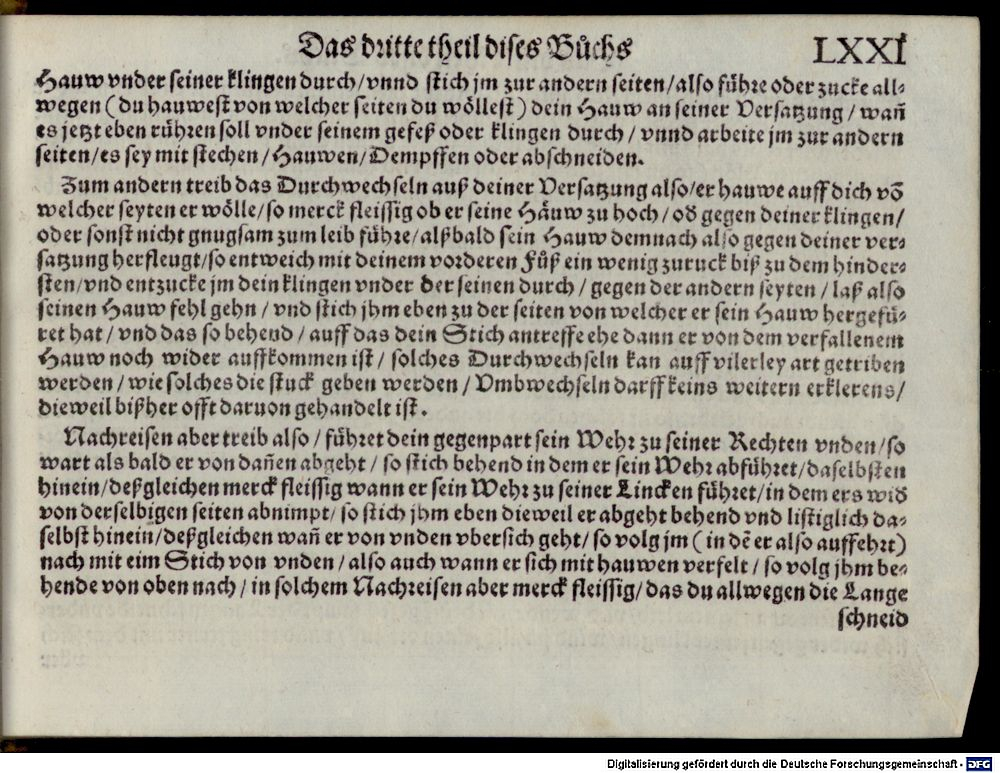 Das dritte theil dises Bůchs LXXI
Hauw vnder seiner klingen durch/vnnd stich jm zur andern seiten/also führe oder zucke all⸗
wegen (du hauwest von welcher seiten du wöllest) dein Hauw an seiner Versatzung/wañ
es jetzt eben rühren soll vnder seinem gefeß oder klingen durch/vnnd arbeite jm zur andern
seiten/es sey mit stechen/Hauwen/Dempffen oder abschneiden.
Zum andern treib das Durchwechseln auß deiner Versatzung also/er hauwe auff dich võ
welcher seyten er wölle/so merck fleissig ob er seine Häuw zu hoch/od̄ gegen deiner klingen/
oder sonst nicht gnugsam zum leib führe/alßbald sein Hauw demnach also gegen deiner ver⸗
satzung herfleugt/so entweich mit deinem vorderen Fůß ein wenig zuruck biß zu dem hinder⸗
sten/vnd entzucke jm dein klingen vnder der seinen durch/gegen der andern seyten/laß also
seinen Hauw fehl gehn/vnd stich jhm eben zu der seiten von welcher er sein Hauw hergefü⸗
ret hat/vnd das so behend/auff das dein Stich antreffe ehe dann er von dem verfallenem
Hauw noch wider auffkommen ist/solches Durchwechseln kan auff vilerley art getriben
werden/wie solches die stuck geben werden/Vmbwechseln darff keins weitern erklerens/
dieweil bißher offt daruon gehandelt ist.
Nachreisen aber treib also/führet dein gegenpart sein Wehr zu seiner Rechten vnden/so
wart als bald er von dañen abgeht/so stich behend in dem er sein Wehr abführet/daselbsten
hinein/deßgleichen merck fleissig wann er sein Wehr zu seiner Lincken führet/in dem ers wid̄
von derselbigen seiten abnimpt/so stich jhm eben dieweil er abgeht behend vnd listiglich da⸗
selbst hinein/deßgleichen wañ er von vnden vbersich geht/so volg jm (in dẽ er also auffehrt)
nach mit eim Stich von vnden/also auch wann er sich mit hauwen verfelt/so volg jhm be⸗
hende von oben nach/in solchem Nachreisen aber merck fleissig/das du allwegen die Lange
schneid
Digitalisierung gefördert durch die Deutsche Forschungsgemeinschaft - DFG